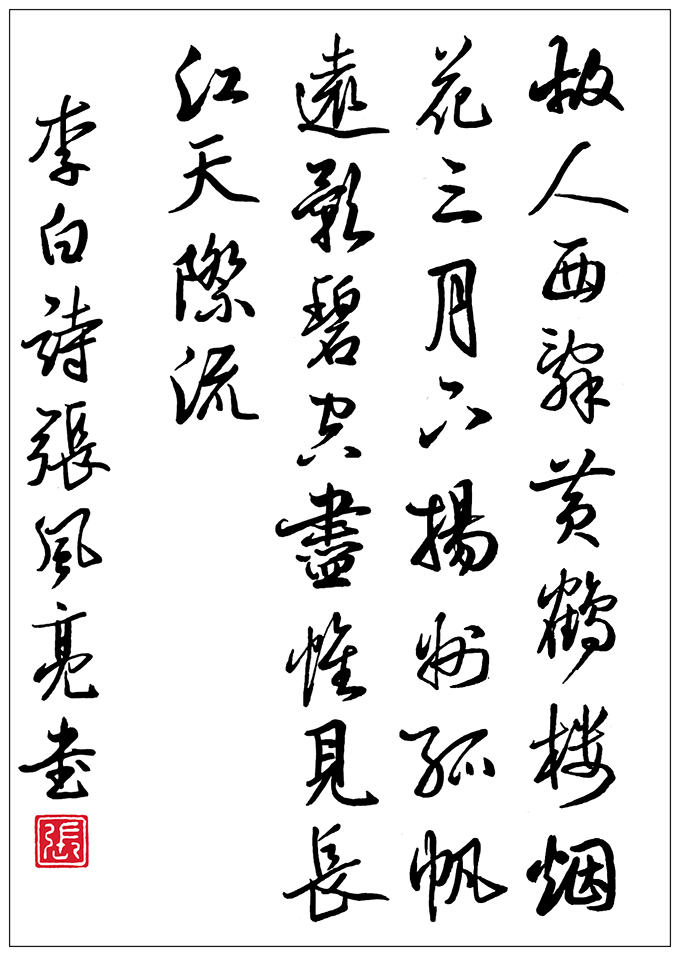 故人西辞黄鹤楼烟
花三月下揚州孤帆
遠影碧空盡惟見長
江天際流
李白詩張風亮书
張